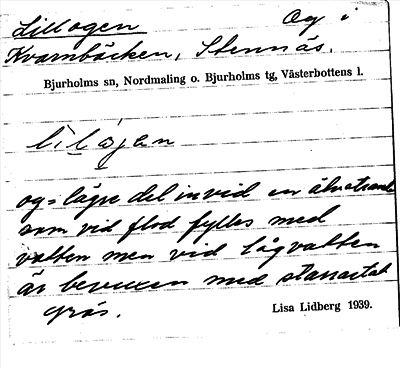 Lillogen Og i
Kvarnbäcken, Stennäs.
Bjurholms sn, Nordmaling o. Bjurholms tg, Västerbottens l.
lìlọ̀jan
og = lägre del invid en älvstrand
som vid flod fylles med
vatten men vid lågvatten
är bevuxen med starrartat
gräs.
Lisa Lidberg 1939.